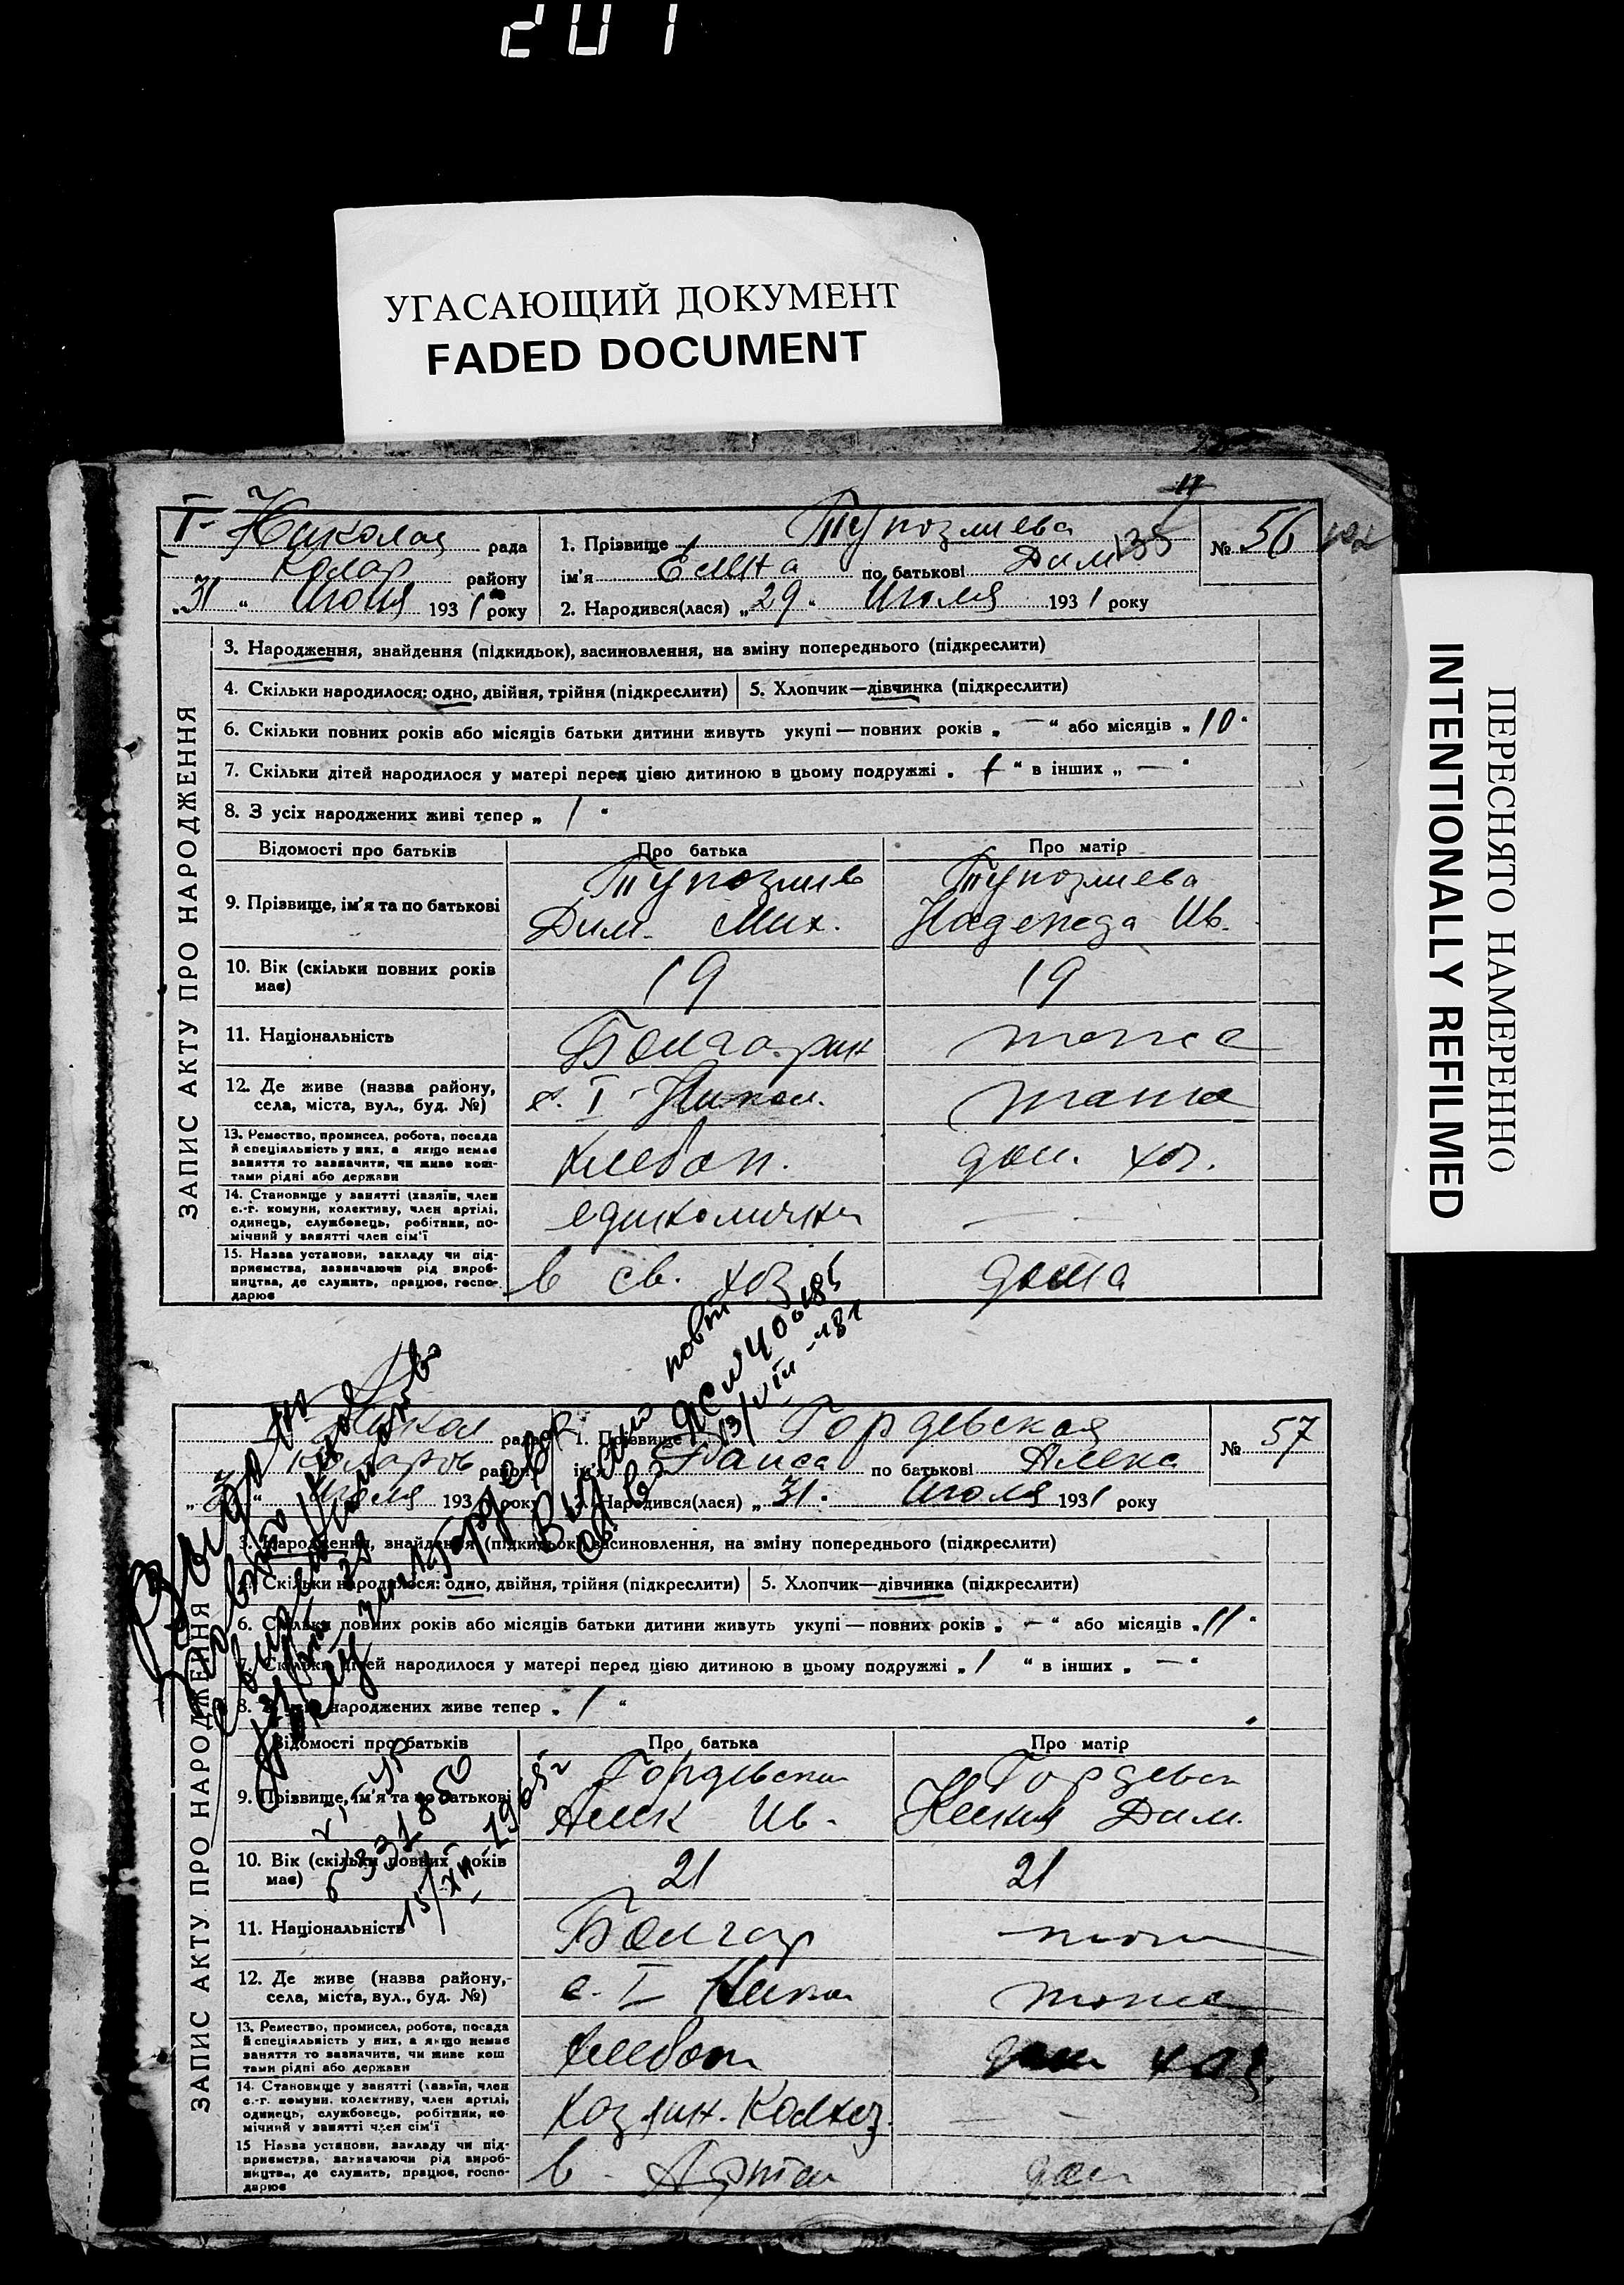 201
УГАСАЮЩИЙ ДОКУМЕНТ
FADED DOCUMENT
ПЕРЕСНЯТО НАМЕРЕННО
INTENTIONALLY REFILMED
ЗАПИС АКТУ ПРО НАРОДЖЕННЯ
I- Николаев рада
Колар району
„31“ Июля 1931 року
1. Прізвище Тупозлиева
ім'я Елена по батькові Дим
135
№ 56
2. Народився(лася) „29“ Июля 1931 року
3. Народження, знайдення (підкидьок), засиновлення, на зміну попереднього (підкреслити)
4. Скільки народилося: одно, двійня, трійня (підкреслити) 5. Хлопчик—дівчинка (підкреслити)
6. Скільки повних років або місяців батьки дитини живуть укупі — повних років „ — “ або місяців „ 10 “
7. Скільки дітей народилося у матері перед цією дитиною в цьому подружжі „ 1 “ в інших „ — “
8. З усіх народжених живі тепер „ 1 “
Відомості про батьків Про батька Про матір
9. Прізвище, ім'я та по батькові Тупозлиев Дим. Мих. Тупозлиева Надежда Ив.
10. Вік (скільки повних років має) 19 19
11. Національність Болгарин тоже
12. Де живе (назва району, села, міста, вул., буд. №) с. I - Никол. тоже
13. Ремество, промисел, робота, посада й спеціяльність у них, а якщо немає заняття то зазначити, чи живе коштами рідні або держави хлебоп. дом. хоз.
14. Становище у занятті (хазяїн, член с.-г. комуни, колективу, член артілі, одинець, службовець, робітник, помічний у занятті член сім'ї единоличник — -
15. Назва установи, закладу чи підприємства, зазначаючи рід виробництва, де служить, працює, господарює в св. хоз дома
ЗАПИС АКТУ ПРО НАРОДЖЕННЯ
Никол рада
Коларов району
Июля 193 року
1. Прізвище Гордевская
ім'я Раиса по батькові Алекс
№ 57
2. Народився(лася) „31“ Июля 1931 року
3. Народження, знайдення (підкидьок), засиновлення, на зміну попереднього (підкреслити)
4. Скільки народилося: одно, двійня, трійня (підкреслити) 5. Хлопчик—дівчинка (підкреслити)
6. Скільки повних років або місяців батьки дитини живуть укупі — повних років „ — “ або місяців „ 11 “
7. Скільки дітей народилося у матері перед цією дитиною в цьому подружжі „ 1 “ в інших „ — “
8. З усіх народжених живе тепер „ 1 “
Відомості про батьків Про батька Про матір
9. Прізвище, ім'я та по батькові Гордевский Алек Ив. Гордевск Дим.
10. Вік (скільки повних років має) 21 21
11. Національність Болгар тоже
12. Де живе (назва району, села, міста, вул., буд. №) с. I Никол тоже
13. Ремество, промисел, робота, посада й спеціяльність у них, а якщо немає заняття то зазначити, чи живе коштами рідні або держави хлебоп дом хоз.
14. Становище у занятті (хазяїн, член с.-г. комуни, колективу, член артілі, одинець, службовець, робітник, помічний у занятті член сім'ї Хозяин. Колхоз. — -
15 Назва установи, закладу чи підприємства, зазначаючи рід виробництва, де служить, працює, господарює в - Артели дом
Видано повт
13/VIII -181
15/XII-1965г